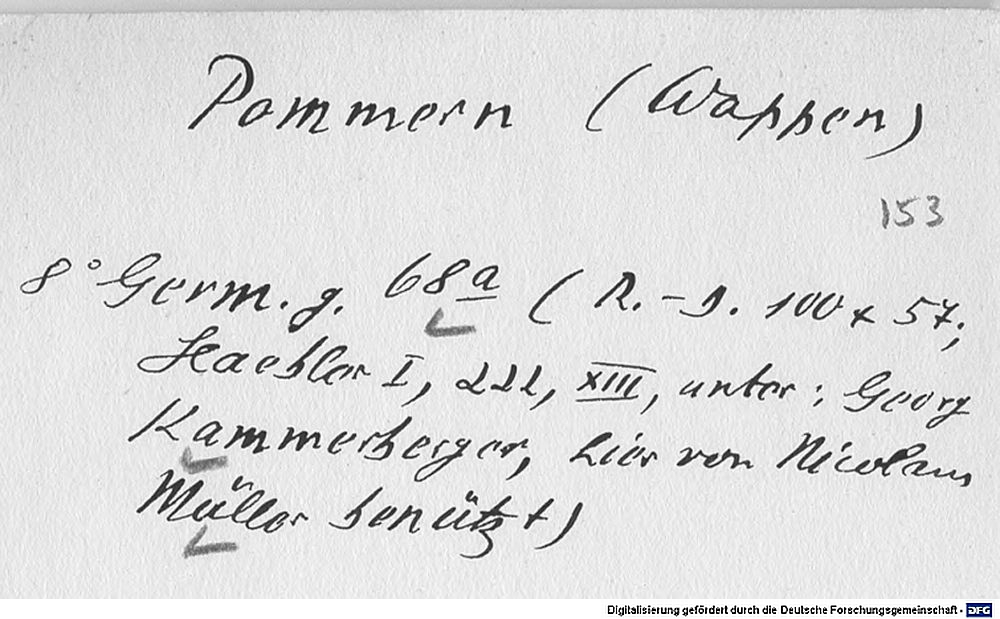 Pommern (Wappen)
153
8° Germ. g. 68a (R.-S. 100 x 57;
Haebler I, 222, XIII, unter: Georg
Kammerberger, hier von Nicolaus
Müller benützt)
Digitalisierung gefördert durch die Deutsche Forschungsgemeinschaft - DFG